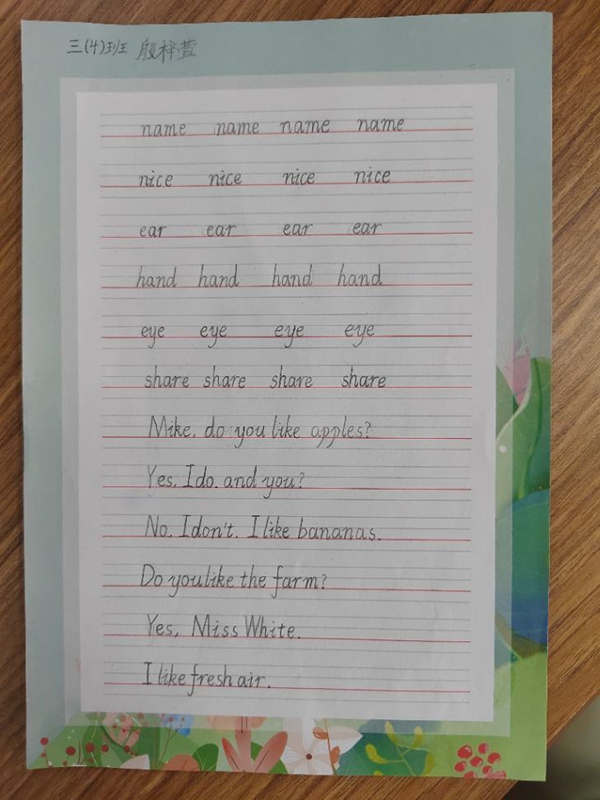 三(4)班 殷梓萱
name name name name
nice nice nice nice
ear ear ear ear
hand hand hand hand
eye eye eye eye
share share share share
Mike. do you like apples?
Yes. I do. and you?
No. I don't. I like bananas.
Do you like the farm?
Yes, Miss White.
I like fresh air.